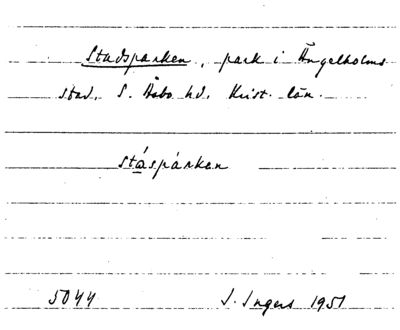 Stadsparken, park i Ängelholms
stad, S. Åsbo hd. Krist. län.
stáspàrken
5044 I. Ingers 1951